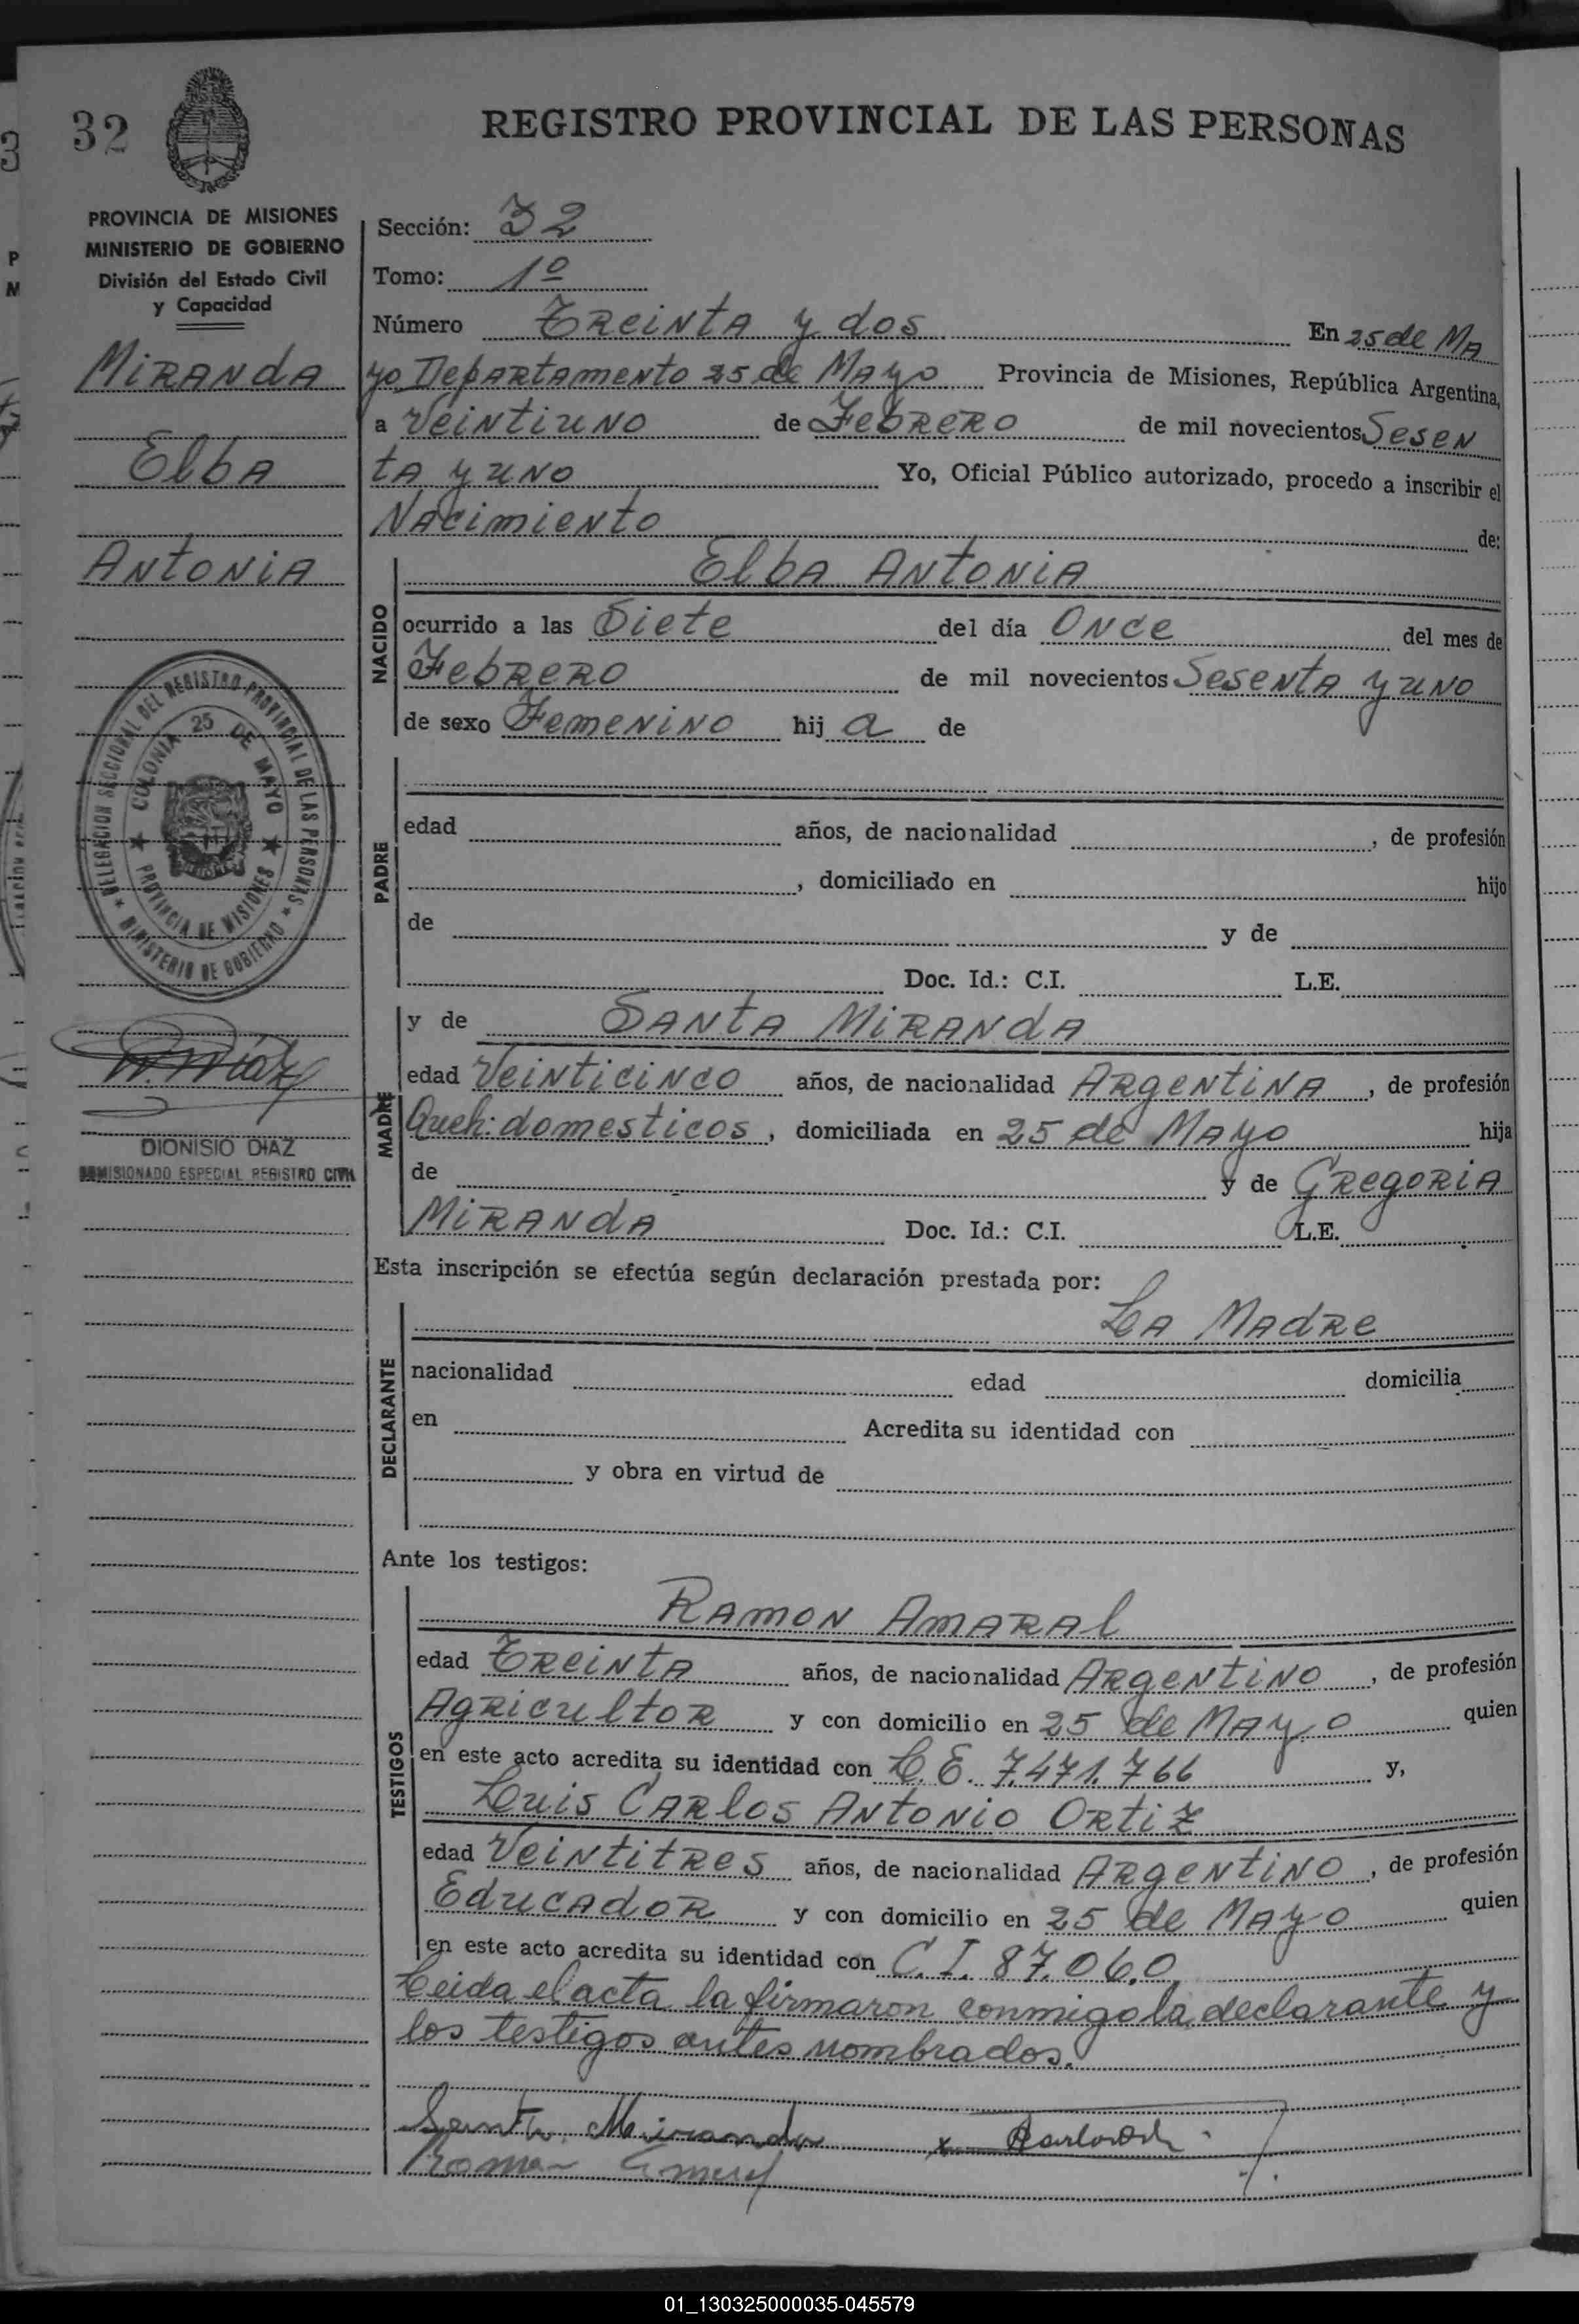 32
REGISTRO PROVINCIAL DE LAS PERSONAS
PROVINCIA DE MISIONES
MINISTERIO DE GOBIERNO
División del Estado Civil
y Capacidad
MIRANDA
Elba
Antonia
DELEGACION SECCIONAL DEL REGISTRO PROVINCIAL DE LAS PERSONAS
MINISTERIO DE GOBIERNO
COLONIA 25 DE MAYO
PROVINCIA DE MISIONES
DIONISIO DIAZ
COMISIONADO ESPECIAL REGISTRO CIVIL
Sección: 32
Tomo: 1º
Número Treinta y dos En 25 de Ma
yo Departamento 25 de Mayo Provincia de Misiones, República Argentina,
a Veintiuno de Febrero de mil novecientos Sesen
ta y uno Yo, Oficial Público autorizado, procedo a inscribir el
Nacimiento de:
NACIDO
Elba Antonia
ocurrido a las Siete del día Once del mes de
Febrero de mil novecientos Sesenta y uno
de sexo Femenino hij a de
PADRE
edad años, de nacionalidad , de profesión
, domiciliado en hijo
de y de
Doc. Id.: C.I. L.E.
MADRE
y de Santa Miranda
edad Veinticinco años, de nacionalidad Argentina, de profesión
Queh: domesticos, domiciliada en 25 de Mayo hija
de y de Gregoria
Miranda Doc. Id.: C.I. L.E.
Esta inscripción se efectúa según declaración prestada por:
DECLARANTE
La Madre
nacionalidad edad domicilia
en Acredita su identidad con
y obra en virtud de
Ante los testigos:
TESTIGOS
Ramon Amaral
edad Treinta años, de nacionalidad Argentino, de profesión
Agricultor y con domicilio en 25 de Mayo quien
en este acto acredita su identidad con L.E. 7.471.766 y,
Luis Carlos Antonio Ortiz
edad Veintitres años, de nacionalidad Argentino, de profesión
Educador y con domicilio en 25 de Mayo quien
en este acto acredita su identidad con C.I. 87.060
Leida el acta la firmaron conmigo la declarante y
los testigos antes nombrados.
Santa Miranda
01_130325000035-045579